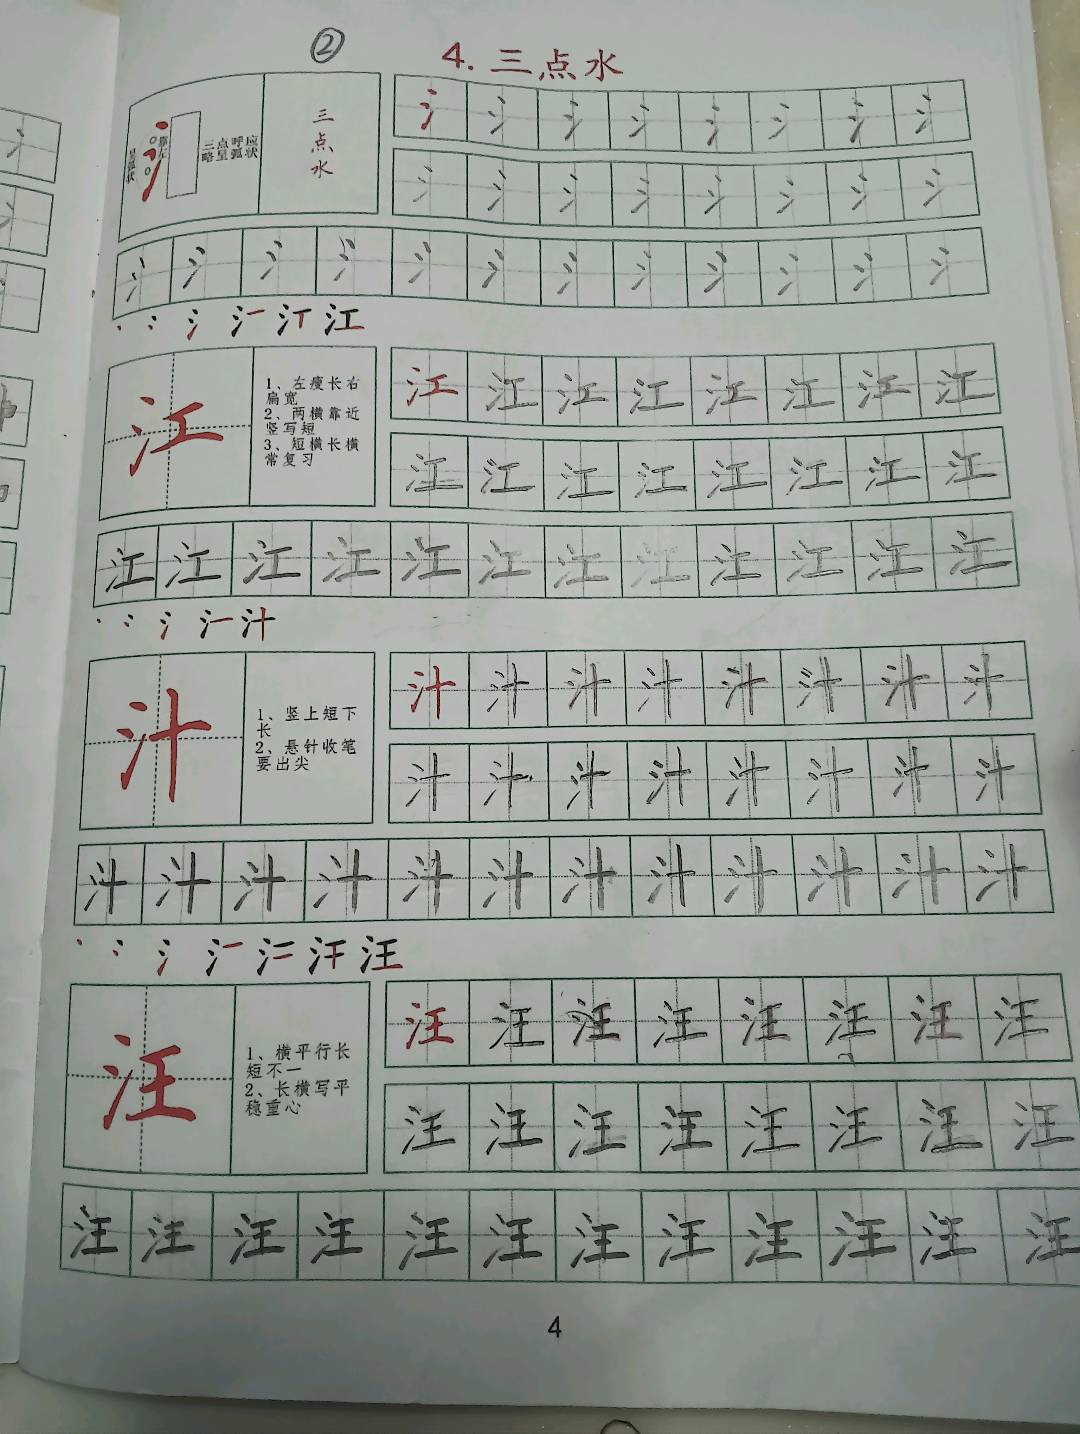 ②
4. 三点水
三点呼应
略呈弧状
呈弧状
三点水
氵 氵 氵 氵 氵 氵 氵 氵
氵 氵 氵 氵 氵 氵 氵 氵
氵 氵 氵 氵 氵 氵 氵 氵 氵 氵 氵 氵
江
江
1、左瘦长右
扁宽
2、两横靠近
竖写短
3、短横长横
常复习
江 江 江 江 江 江 江 江
江 江 江 江 江 江 江 江
江 江 江 江 江 江 江 江 江 江 江 江
汁
汁
1、竖上短下
长
2、悬针收笔
要出尖
汁 汁 汁 汁 汁 汁 汁 汁
汁 汁 汁 汁 汁 汁 汁 汁
汁 汁 汁 汁 汁 汁 汁 汁 汁 汁 汁 汁
汪
汪
1、横平行长
短不一
2、长横写平
稳重心
汪 汪 汪 汪 汪 汪 汪 汪
汪 汪 汪 汪 汪 汪 汪 汪
汪 汪 汪 汪 汪 汪 汪 汪 汪 汪 汪 汪
4